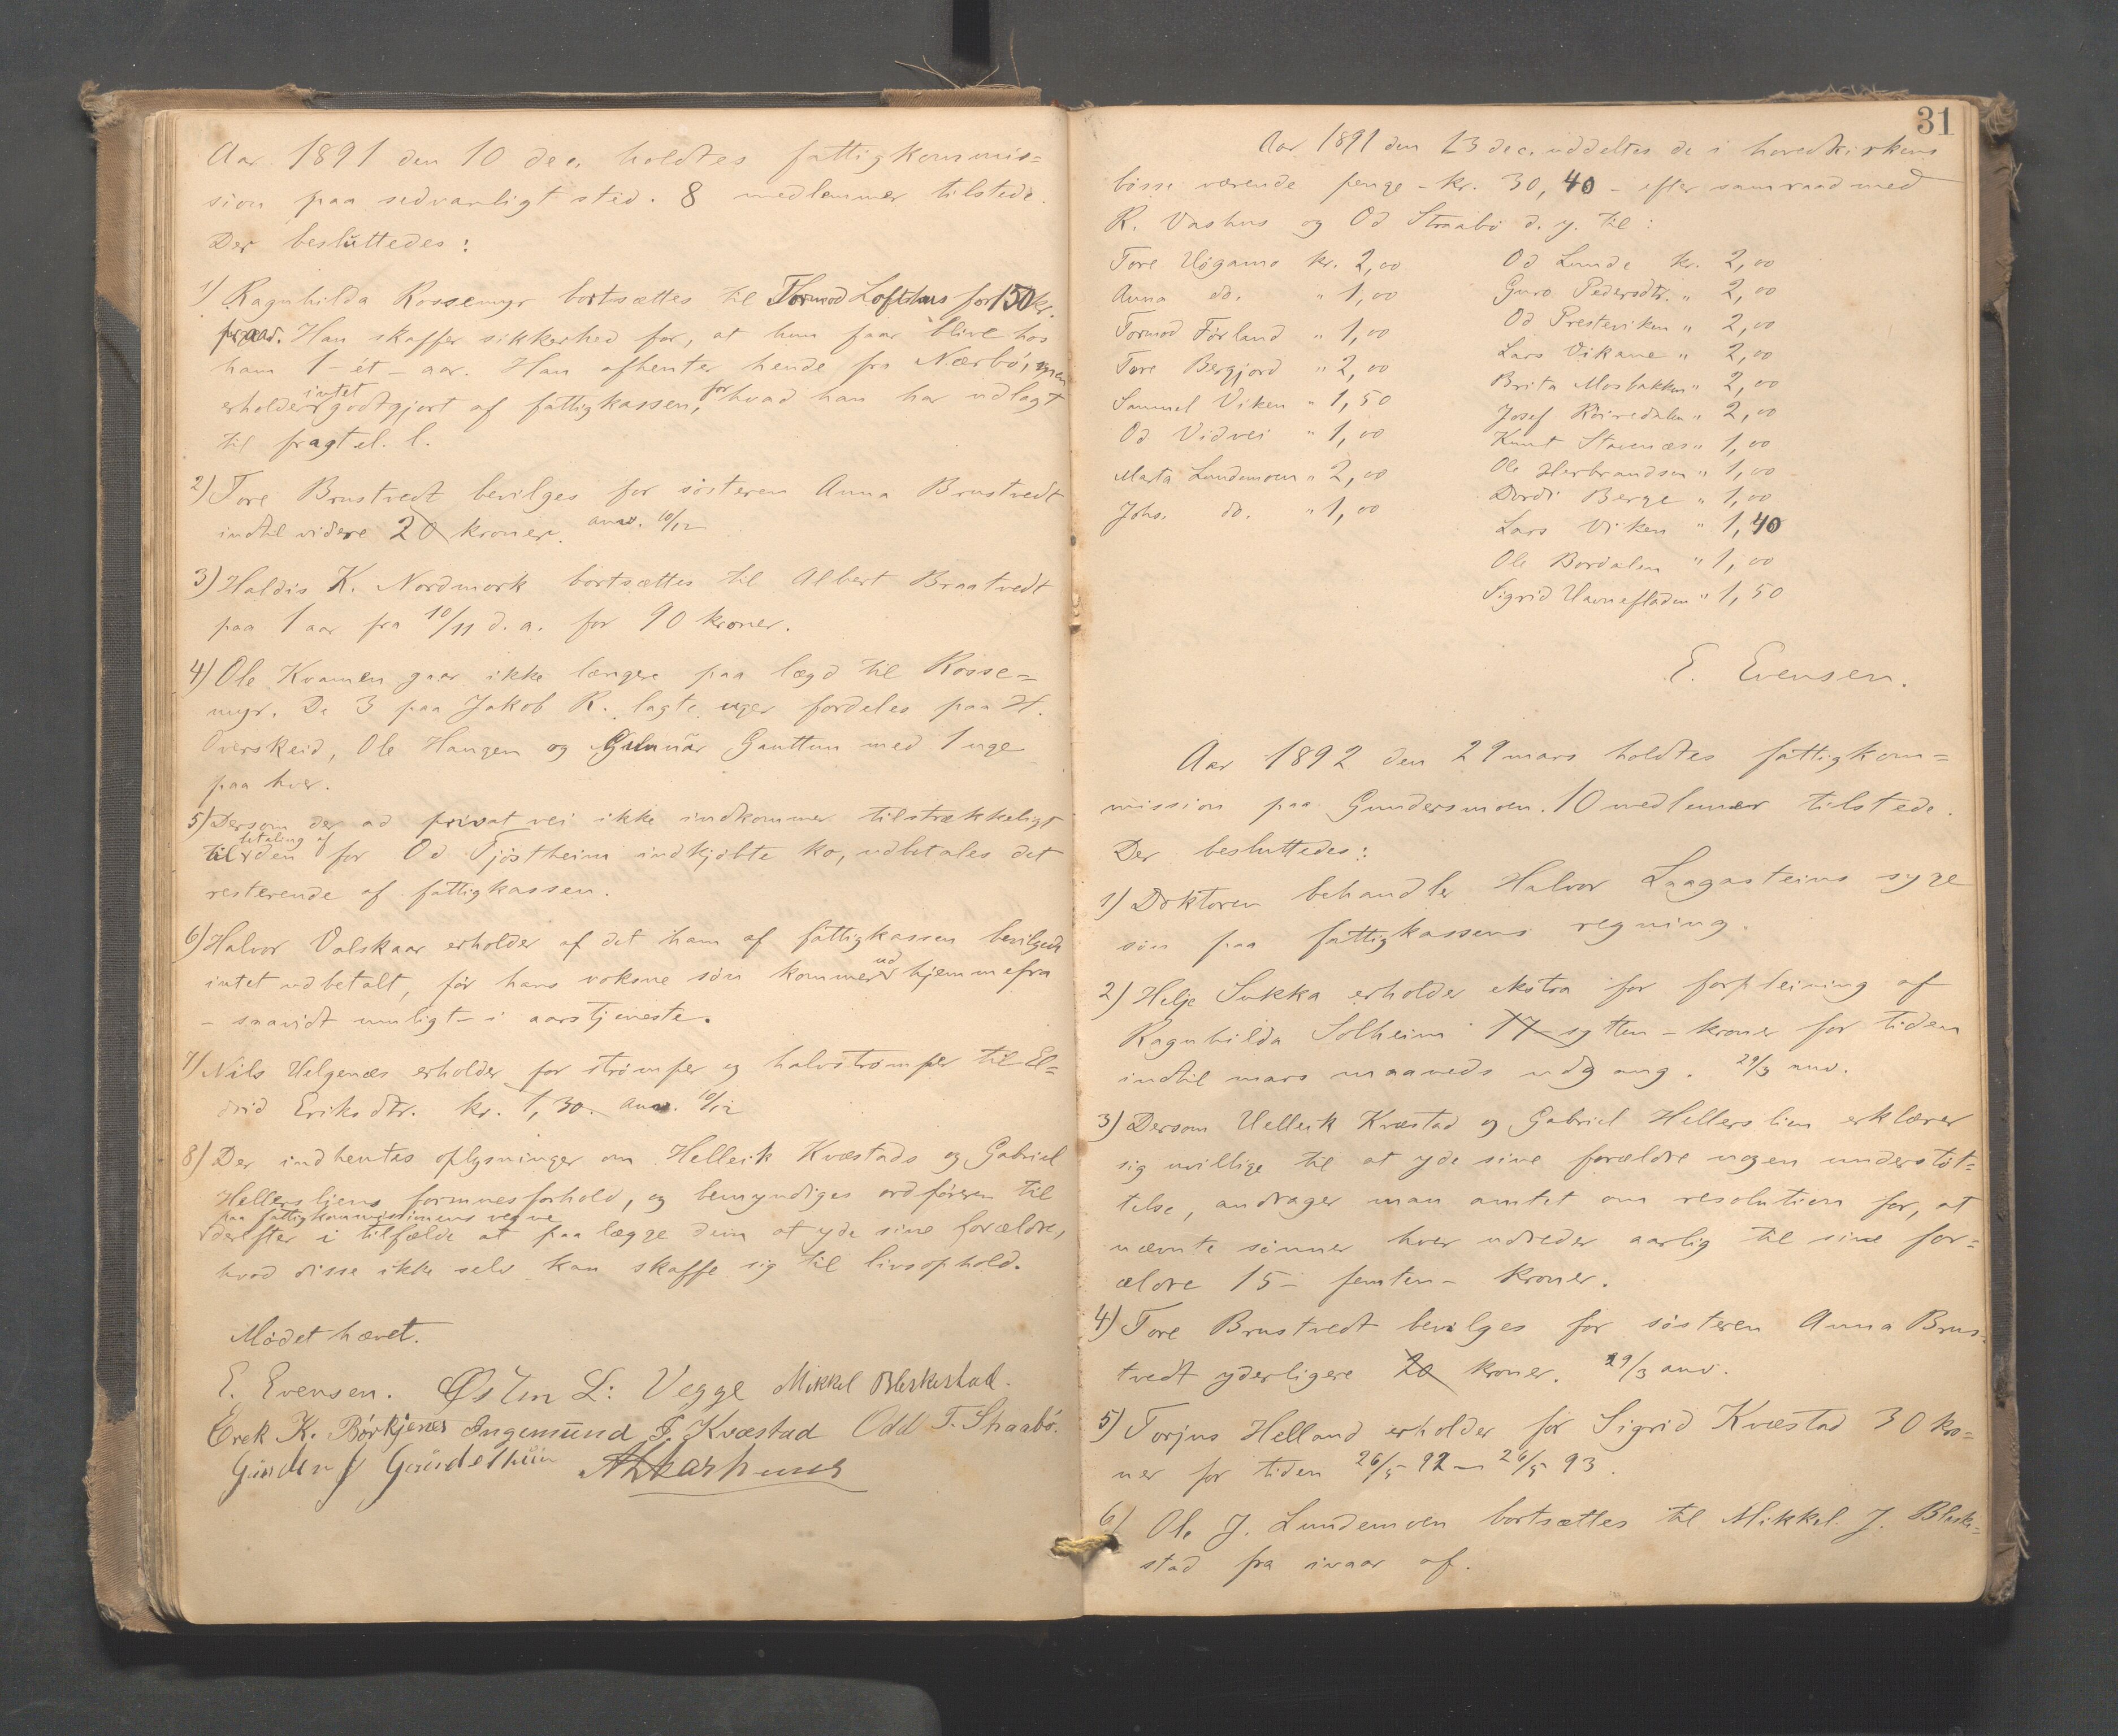 Aar 1891 den 10 dec. holdtes fattigkommis=
sion paa sedvanligt sted. 8 medlemmer tilstede.
Der besluttedes:
1) Ragnhilda Rossemyr bortsættes til Tormod Loftshus for 150 kr.
pr aar. Han skaffer sikkerhed for, at hun faar blive hos
ham 1 - ét - aar. Han afhenter hende fra Nærbø, men
erholder intet godtgjort af fattigkassen, for hvad han har udlagt
til fragt el. l.
2) Tore Brustvedt bevilges for søsteren Anna Brustvedt
indtil videre 20 kroner. anv. 10/12
3) Haldis K. Nordmork bortsættes til Albert Braatvedt
paa 1 aar fra 10/11 d. a. for 90 kroner.
4) Ole Kvamen gaar ikke længere paa lægd til Rosse=
myr. De 3 paa Jakob R. lagte uger fordeles paa H.
Øverskeid, Ole Haugen og Gunnar Gauttun med 1 uge
paa hver.
5) Dersom der ad privat vei ikke indkommer tilstrækkeligt
til betaling af den for Od Tjøstheim indkjøbte ko, udbetales det
resterende af fattigkassen.
6) Halvor Valskaar erholder af det ham af fattigkassen bevilgede
intet udbetalt, før hans voksne søn kommer ud hjemmefra
- saavidt muligt - i aarstjeneste.
7) Nils Helgenæs erholder for strømper og halvstrømper til El=
drid Eriksdtr. kr. 1,30. anv. 10/12
8) Der indhentes oplysninger om Helleik Kvæstads og Gabriel
Hellersliens formuesforhold, og bemyndiges ordføreren til
paa fattigkommissionens vegne
derefter i tilfælde at paalægge dem at yde sine forældre,
hvad disse ikke selv kan skaffe sig til livsophold.
Mødet hævet.
E. Evensen. Østen L: Vegge Mikkel Bleskestad.
Erek K. Børkjenes Ingemund T. Kvæstad Odd T. Straabø.
31
Aar 1891 den 23 dec. uddeltes de i hovedkirkens
bøsse værende penge - kr. 30,40 - efter samraad med
R. Vashus og Od Straabø d. y. til:
Tore Høgamo kr. 2,00
Anna do. " 1,00
Tormod Førland " 1,00
Tore Bergjord " 2,00
Samuel Viken " 1,50
Od Vidvei " 1,00
Marta Lundemoen " 2,00
Johs. do. " 1,00
Od Lunde kr. 2,00
Guro Pedersdtr. " 2,00
Od Presteviken " 2,00
Lars Vikane " 2,00
Brita Mosbakken " 2,00
Josef Røiredalen " 2,00
Knut Stavenæs " 1,00
Ole Herbrandsen " 1,00
Dordi Berge " 1,00
Lars Viken " 1,40
Ole Bordalen " 1,00
Sigrid Havnefladen " 1,50
E. Evensen.
Aar 1892 den 29 mars holdtes fattigkom=
mission paa Gundersmoen. 10 medlemer tilstede.
Der besluttedes:
1) Doktoren behandler Halvor Laagasteins syge
søn paa fattigkassens regning.
2) Helje Sukka erholder ekstra for forpleining af
Ragnhilda Solheim 17 - sytten - kroner for tiden
indtil mars maaneds udgang. 29/3 anv.
3) Dersom Helleik Kvæstad og Gabriel Hellerslien erklærer
sig uvillige til at yde sine forældre nogen understøt=
telse, andrager man amtet om resolution for, at
nævnte sønner hver udreder aarlig til sine for=
ældre 15 - femten - kroner.
4) Tore Brustvedt bevilges for søsteren Anna Brus=
tvedt yderligere 20 kroner. 29/3 anv.
5) Torjus Helland erholder for Sigrid Kvæstad 30 kro=
ner for tiden 26/5 92 - 26/5 93.
6) Ole J. Lundemoen bortsættes til Mikkel J. Bleske=
stad fra ivaar af.